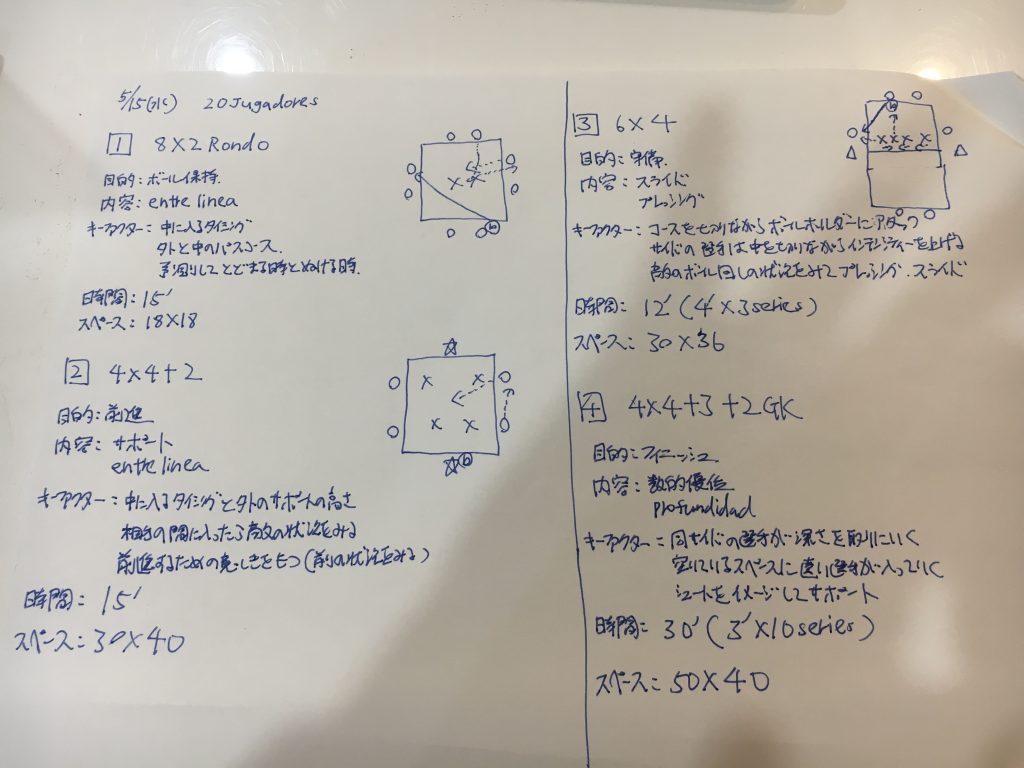 5/15(水) 20 Jugadores
1 8×2 Rondo
目的：ボール保持.
内容：entre linea
キーファクター：中に入るタイミング
外と中のパスコース.
予測してとどまる時とぬける時.
時間：15′
スペース：18×18
2 4×4+2
目的：前進
内容：サポート
entre linea
キーファクター：中に入るタイミングと外のサポートの高さ
相手の間に入ったら の状況をみる
前進するための意しきをもつ(前の状況をみる)
時間：15′
スペース：30×40
3 6×4
目的：守備.
内容：スライド
プレッシング
キーファクター：コースをきりながらボールホルダーにアタック
サイドの選手は中をきりながらインテンシティーを上げる
ボール回しの状況をみてプレッシング.スライド
時間：12′(4′×3 series)
スペース：30×36
4 4×4+3+2GK
目的：フィニッシュ
内容：数的優位
profundidad
キーファクター：同サイドの選手が深さを取りにいく
空いているスペースに遠い選手が入っていく
シュートをイメージしてサポート
時間：30′(3′×10 series)
スペース：50×40